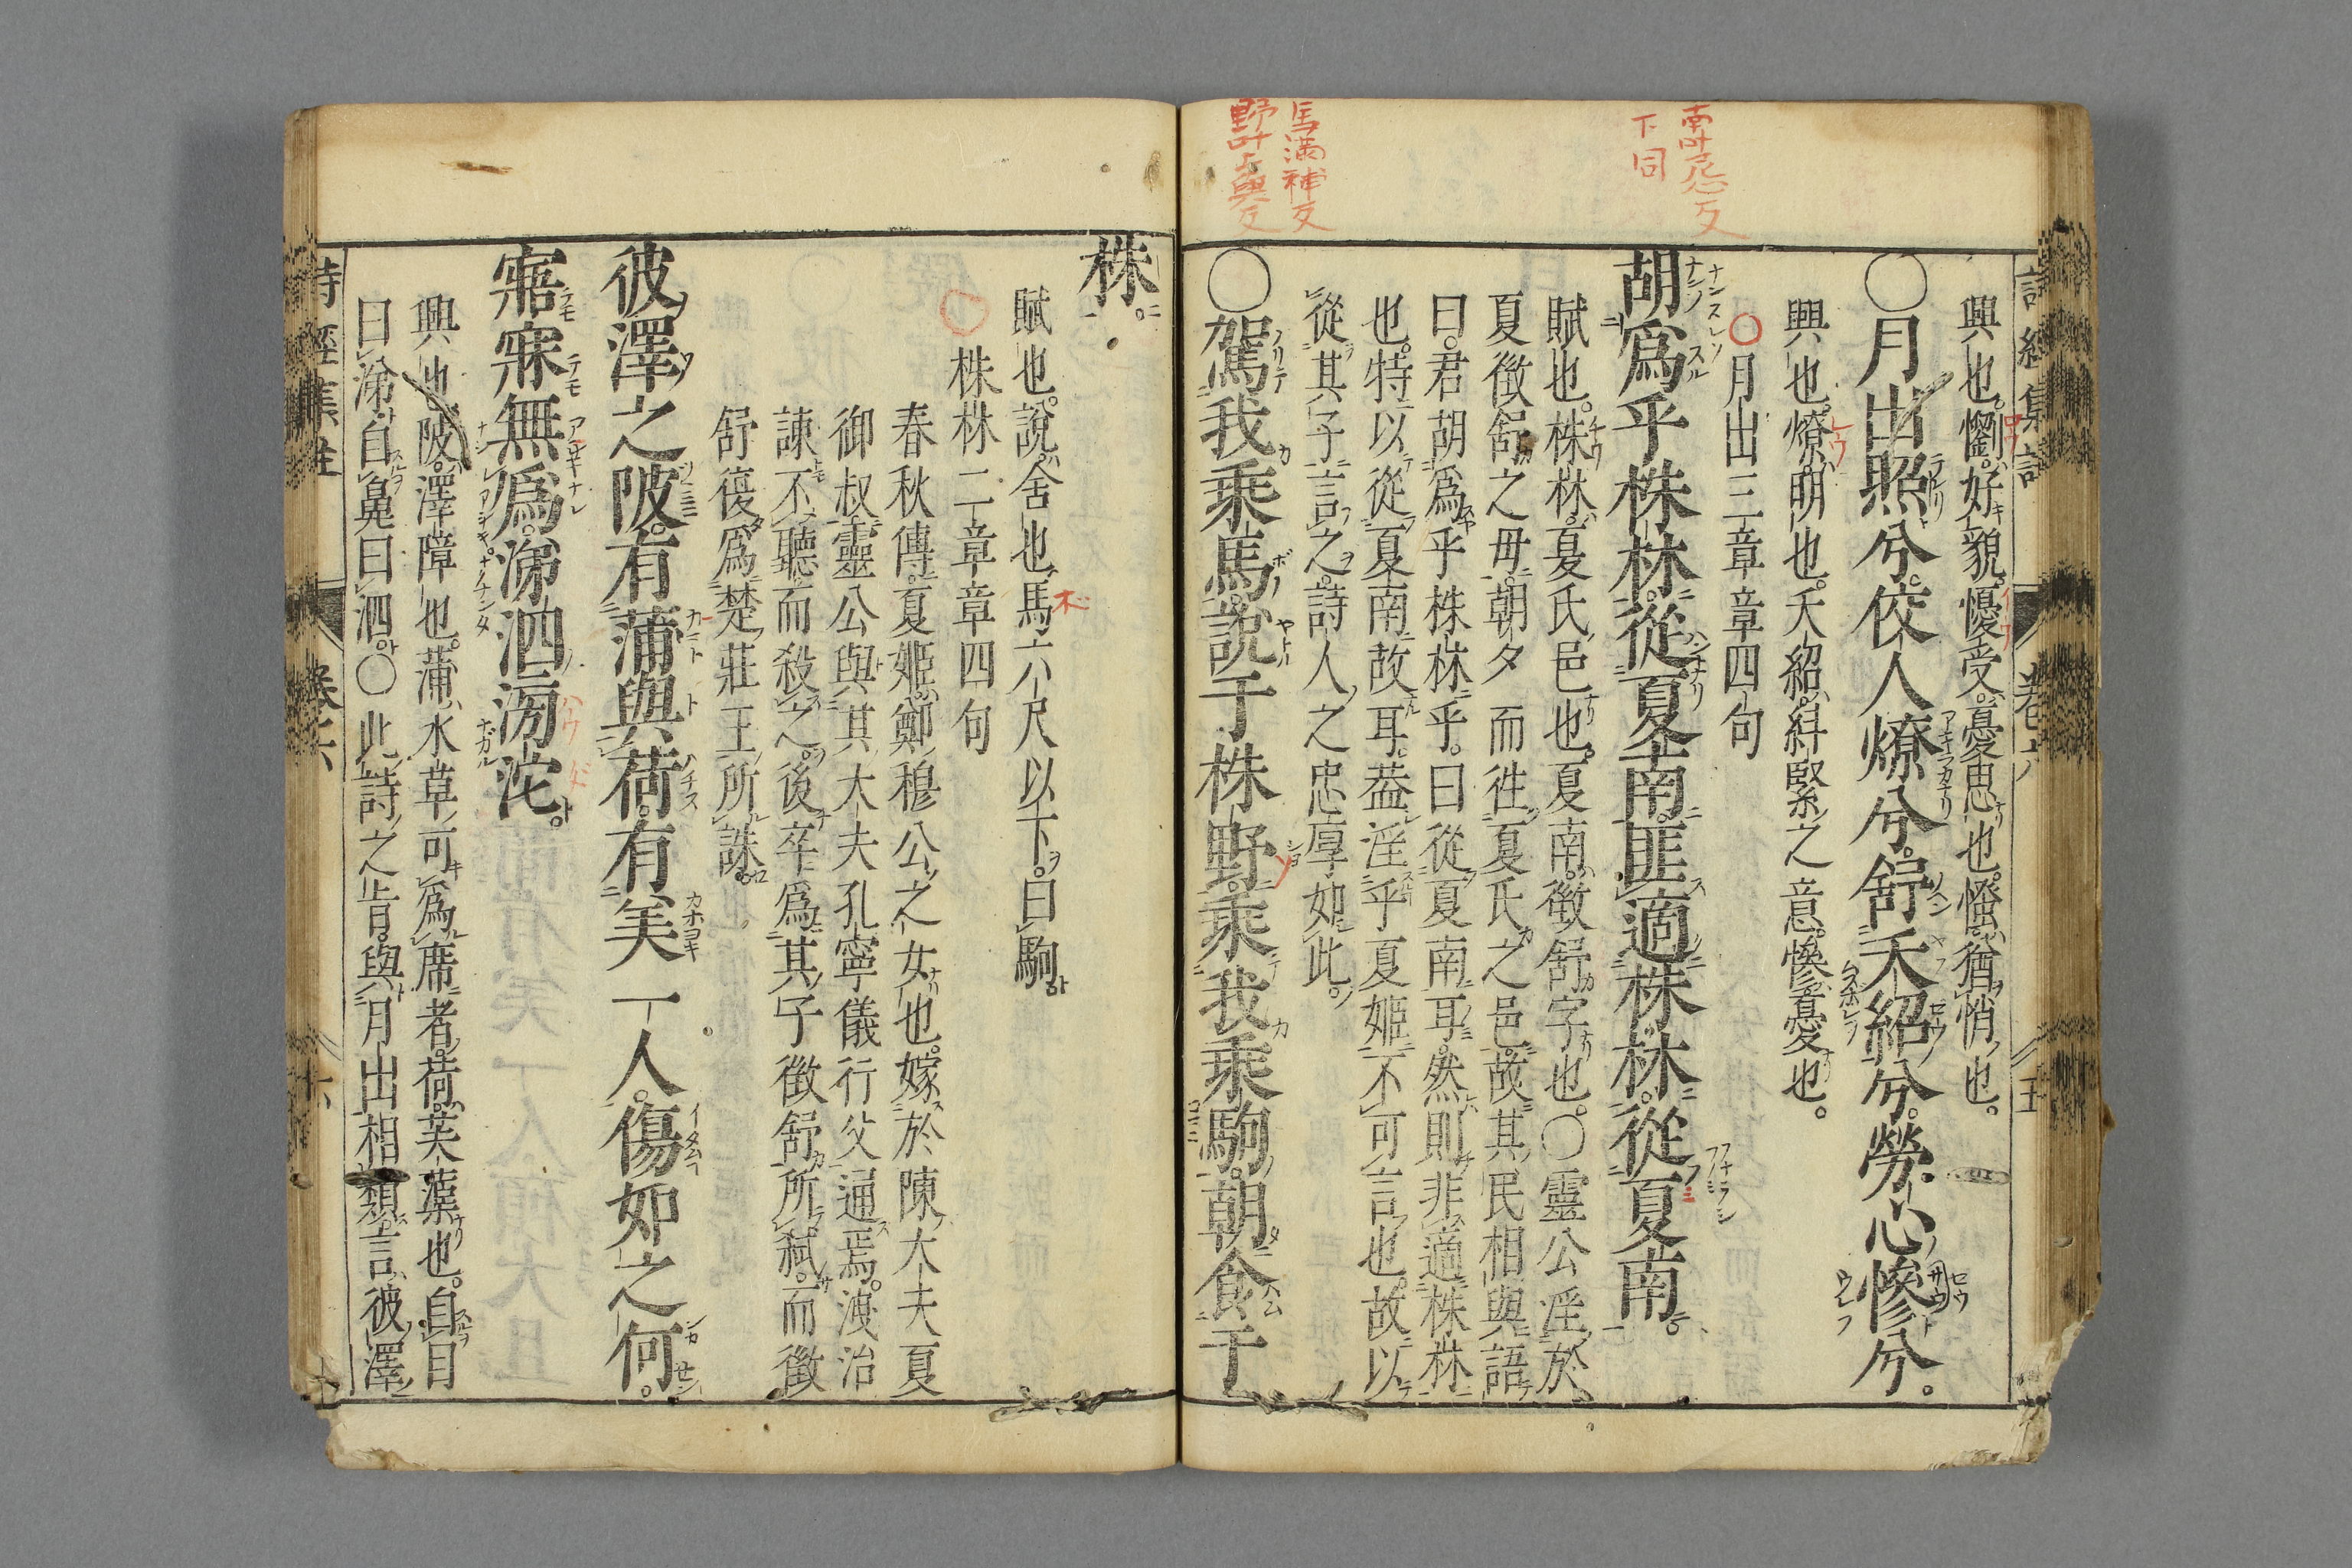 南叶尼心反
下同
馬滿補反
野叶上與反
詩經集註 卷六 五
興也。懰。好貌。懮受。憂思也。慅。猶悄也。
○月出照兮。佼人燎兮。舒夭紹兮。勞心慘兮。
興也。燎。明也。夭紹。糾緊之意。慘。憂也。
月出三章章四句
胡爲乎株林。從夏南。匪適株林。從夏南。
賦也。株林。夏氏邑也。夏南。徵舒字也。○靈公淫於
夏徵舒之母。朝夕而往夏氏之邑。故其民相與語
曰。君胡爲乎株林乎。曰從夏南耳。然則非適株林
也。特以從夏南故耳。葢淫乎夏姬。不可言也。故以
從其子言之。詩人之忠厚如此。
○駕我乘馬。說于株野。乘我乘駒。朝食于
株。
賦也。說。舍也。馬六尺以下。曰駒
株林二章章四句
春秋傳。夏姬。鄭穆公之女也。嫁於陳大夫夏
御叔。靈公與其大夫孔寧儀行父通焉。洩冶
諫不聽而殺之。後卒爲其子徵舒所弑。而徵
舒復爲楚莊王所誅。
彼澤之陂。有蒲與荷。有美一人。傷如之何。
寤寐無爲。涕泗滂沱。
興也。陂。澤障也。蒲。水草可爲席者。荷。芙蕖也。自目
曰涕。自鼻曰泗。○此詩之旨。與月出相類。言彼澤
詩經集註 卷六 六